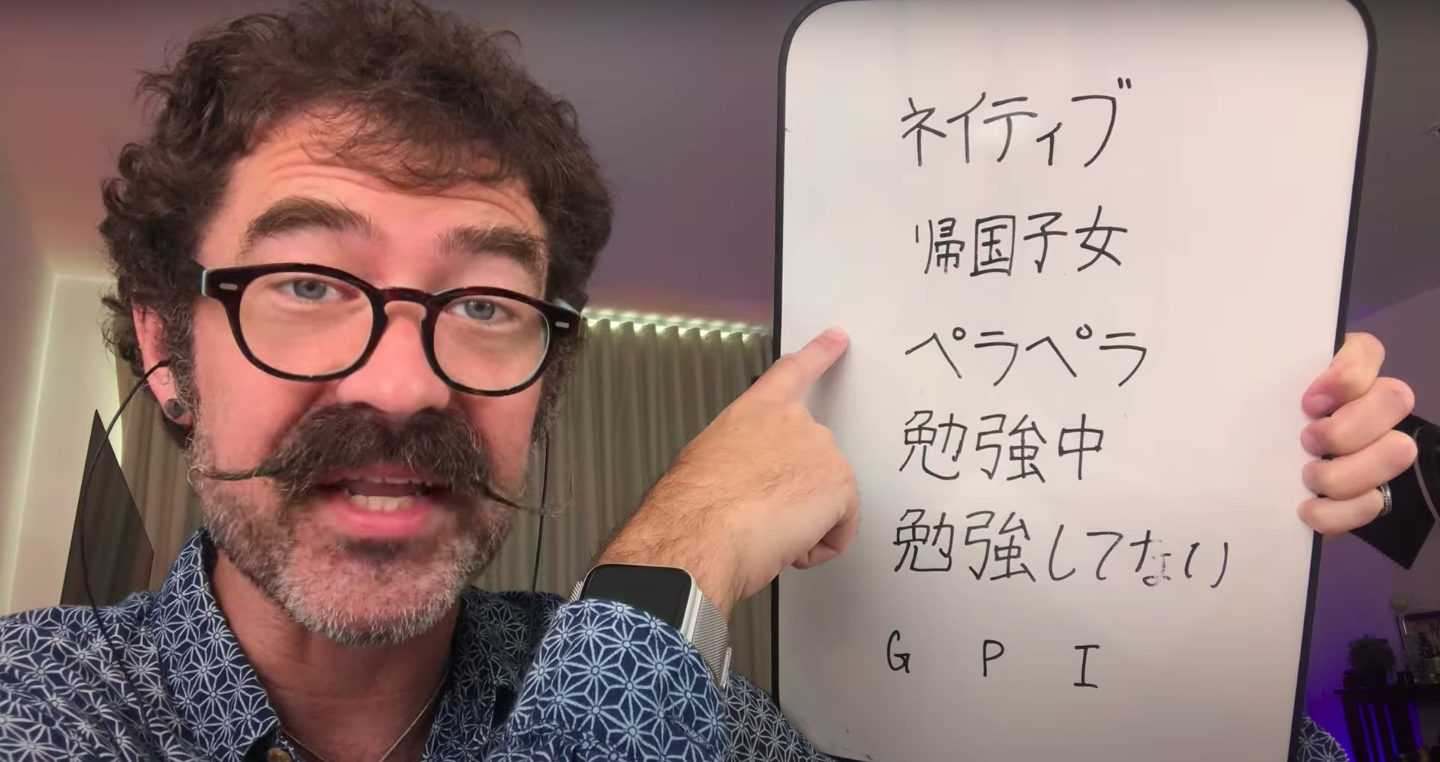 ネイティブ
帰国子女
ペラペラ
勉強中
勉強してない
G P I